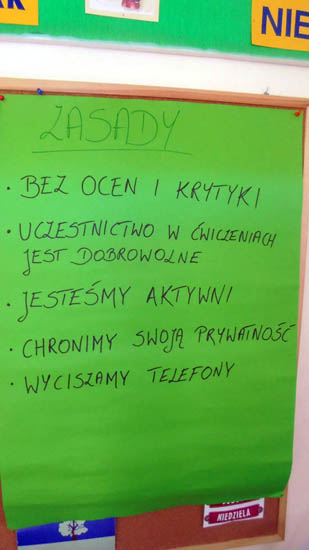 NIE
ZASADY
· BEZ OCEN I KRYTYKI
· UCZESTNICTWO W ĆWICZENIACH
JEST DOBROWOLNE
· JESTEŚMY AKTYWNI
· CHRONIMY SWOJĄ PRYWATNOŚĆ
· WYCISZAMY TELEFONY
NIEDZIELA